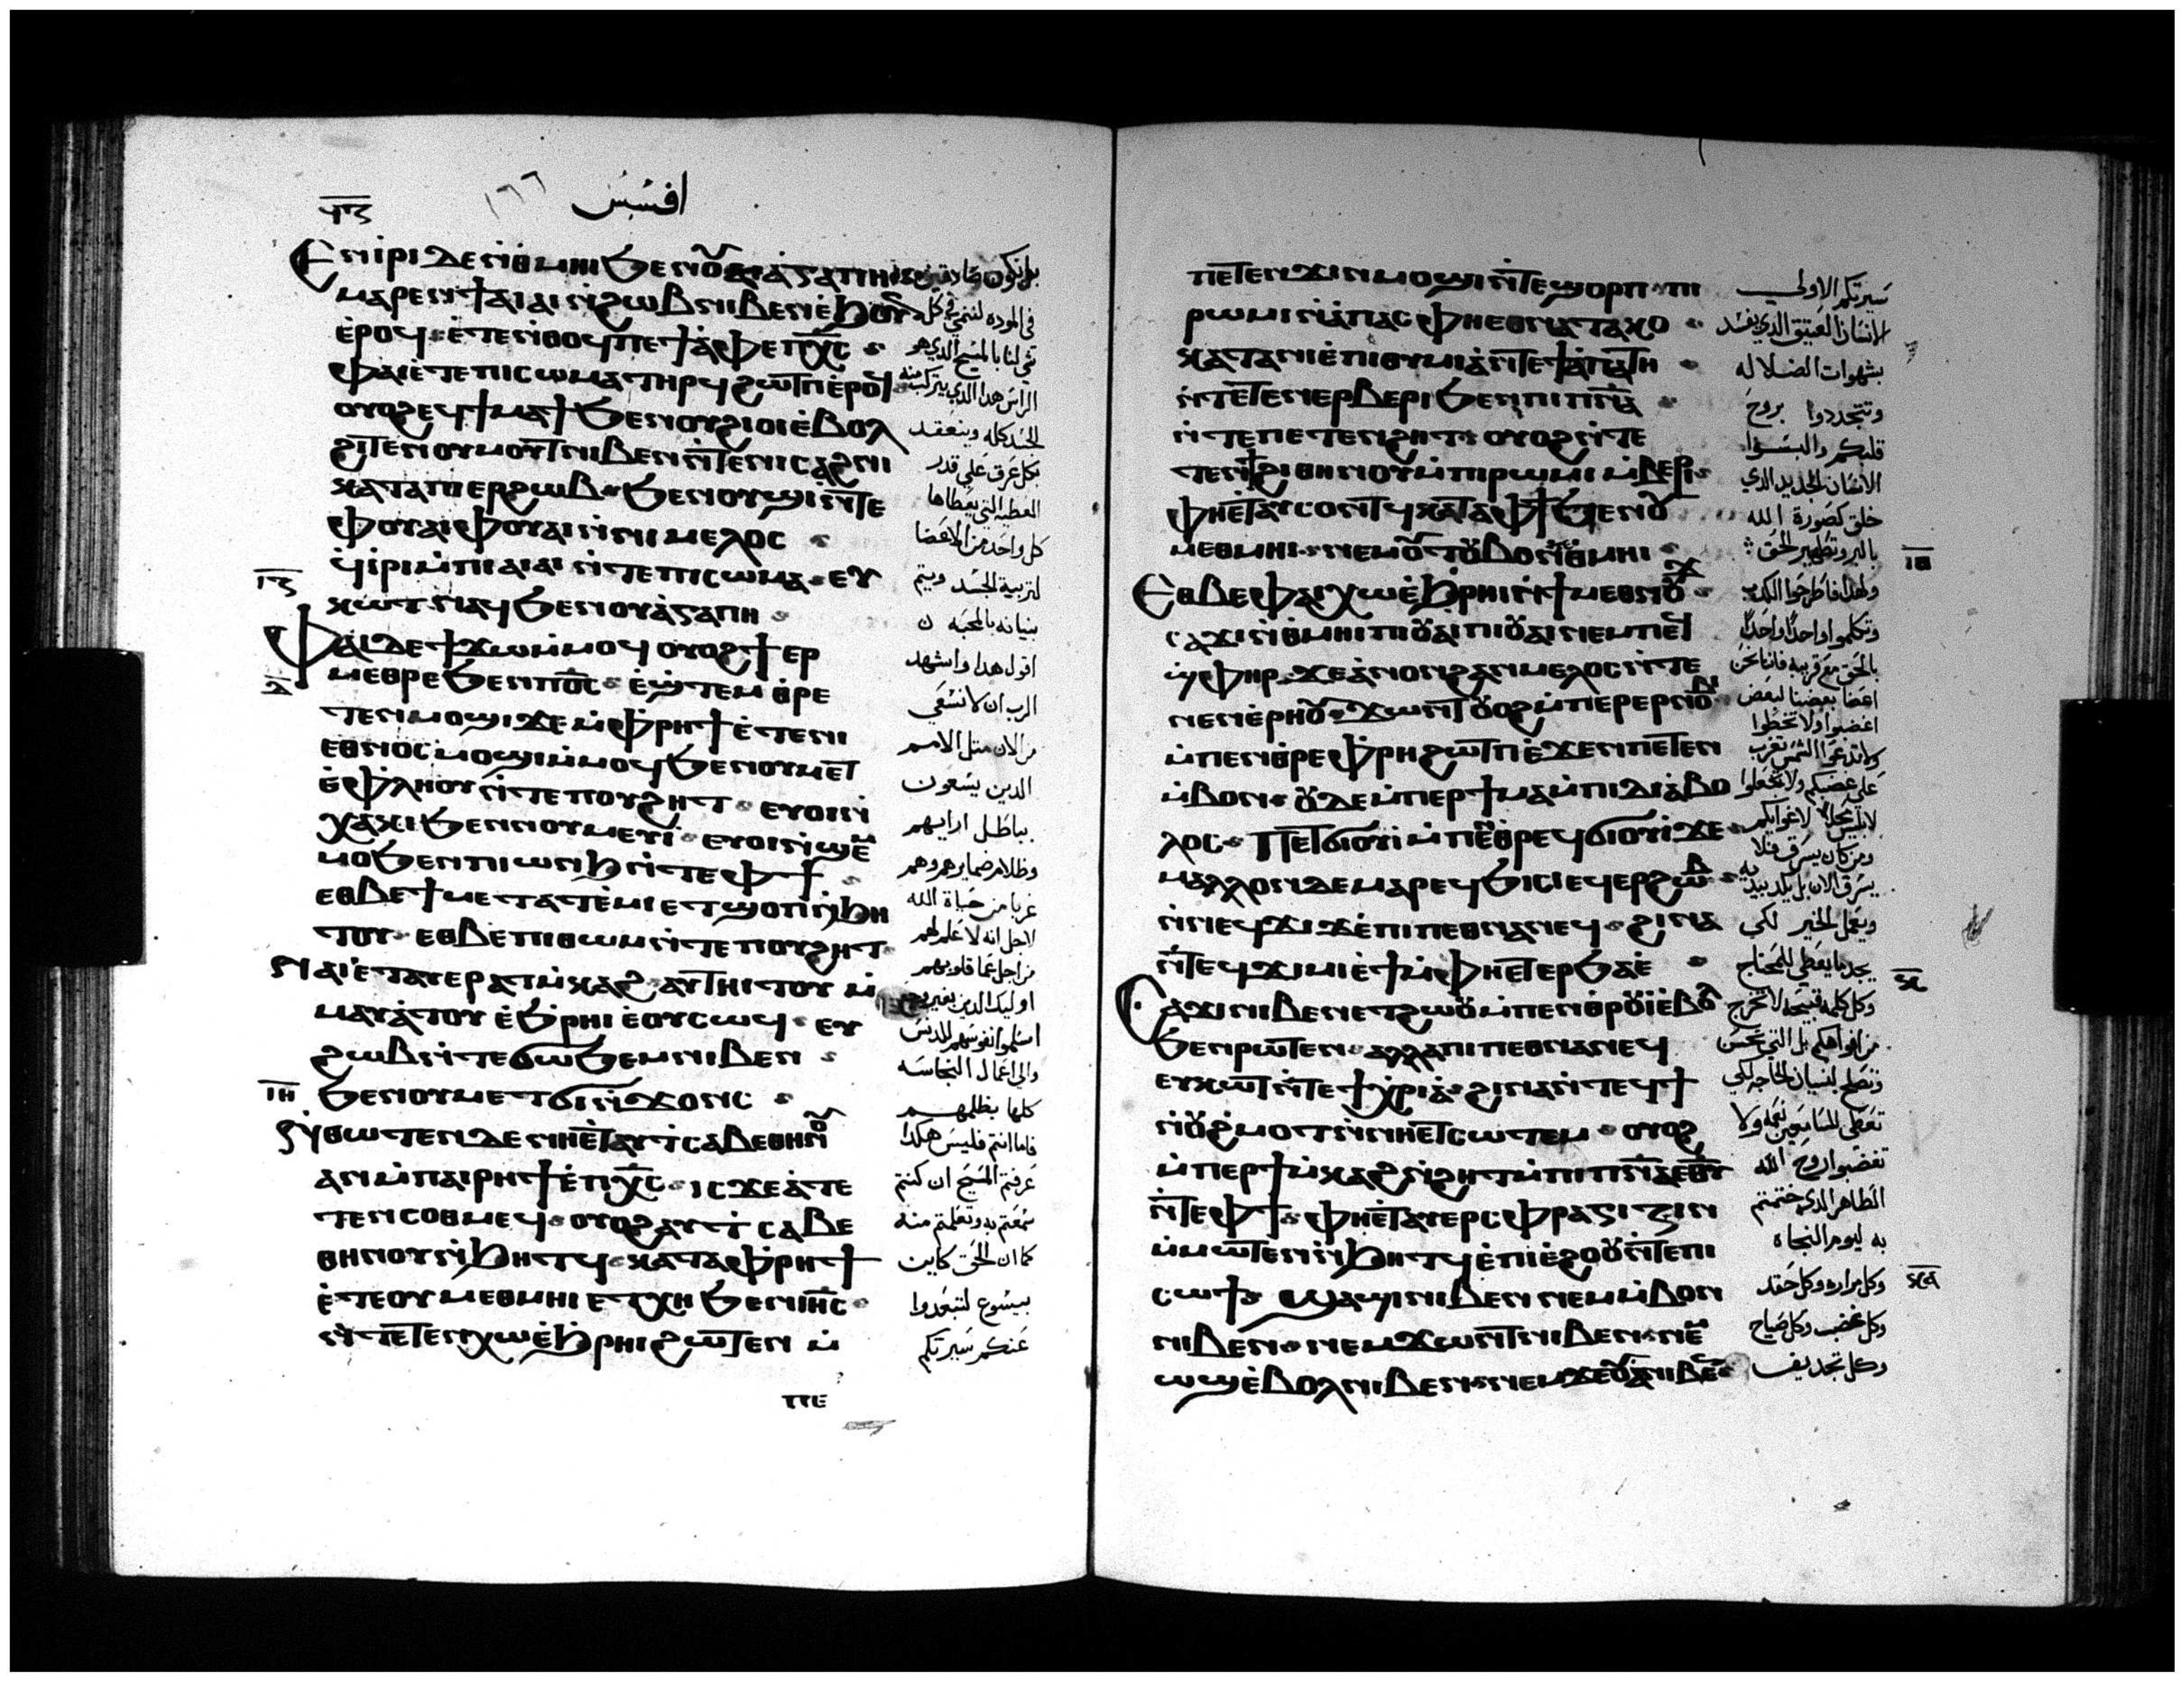 افسس ١٦٦
Ⲉⲛⲓⲣⲓ ⲇⲉ ⲛ̀ⲑⲙⲏⲓ ϧⲉⲛ ⲟⲩⲁⲅⲁⲡⲏ
ⲙⲁⲣⲉⲛϯⲁⲓⲁⲓ ⲛ̀ϩⲱⲃ ⲛⲓⲃⲉⲛ ⲉ̀ϧⲟⲩⲛ
ⲉ̀ⲣⲟϥ ⲉ̀ⲧⲉ ⲛ̀ⲑⲟϥ ⲡⲉ ϯⲁ̀ⲫⲉ ⲡⲭ̅ⲥ̅
ⲫⲁⲓ ⲉ̀ⲧⲉ ⲡⲓⲥⲱⲙⲁ ⲧⲏⲣϥ ϩⲱⲧⲡ ⲉ̀ⲣⲟϥ
ⲟⲩⲟϩ ⲉϥϯⲙⲁϯ ϧⲉⲛ ⲟⲩϩⲓⲟⲓ ⲉ̀ⲃⲟⲗ
ϩⲓⲧⲉⲛ ⲟⲩⲙⲟⲩⲧ ⲛⲓⲃⲉⲛ ⲛ̀ⲧⲉ ⲛⲓⲥⲁϩⲛⲓ
ⲕⲁⲧⲁ ⲡⲉⲣϩⲱⲃ ϧⲉⲛ ⲟⲩϣⲓ ⲛ̀ⲧⲉ
ⲫⲟⲩⲁⲓ ⲫⲟⲩⲁⲓ ⲛ̀ⲛⲓⲙⲉⲗⲟⲥ
ϥⲓⲣⲓ ⲙ̀ⲡⲓⲁⲓⲁⲓ ⲛ̀ⲧⲉ ⲡⲓⲥⲱⲙⲁ ⲉⲩ
ⲕⲱⲧ ⲛⲁϥ ϧⲉⲛ ⲟⲩⲁ̀ⲅⲁⲡⲏ
Ⲫⲁⲓ ⲇⲉ ϯϫⲱ ⲙ̀ⲙⲟϥ ⲟⲩⲟϩ ϯⲉⲣ
ⲙⲉⲑⲣⲉ ϧⲉⲛ ⲡⲟ̅ⲥ̅ ⲉ̀ϣⲧⲉⲙⲑⲣⲉ
ⲧⲉⲛⲙⲟϣⲓ ϫⲉ ⲙ̀ⲫⲣⲏϯ ⲉ̀ⲧⲉ ⲛⲓ
ⲉⲑⲛⲟⲥ ⲙⲟϣⲓ ⲙ̀ⲙⲟϥ ϧⲉⲛ ⲟⲩⲙⲉⲧ
ⲉ̀ⲫⲗⲏⲟⲩ ⲛ̀ⲧⲉ ⲡⲟⲩϩⲏⲧ ⲉⲩⲟⲓ ⲛ̀
ⲭⲁⲕⲓ ϧⲉⲛ ⲛⲟⲩⲙⲉⲩⲓ ⲉⲩⲟⲓ ⲛ̀ϣⲉⲙ
ⲙⲟ ϧⲉⲛ ⲡⲓⲱⲛϧ ⲛ̀ⲧⲉ ⲫϯ
ⲉⲑⲃⲉ ϯⲙⲉⲧⲁⲧⲉ̀ⲙⲓ ⲉⲧϣⲟⲡ ⲛ̀ϧⲏ
ⲧⲟⲩ ⲉⲑⲃⲉ ⲡⲓⲑⲱⲙ ⲛ̀ⲧⲉ ⲡⲟⲩϩⲏⲧ
Ⲛⲁⲓ ⲉ̀ⲧⲁⲩⲉⲣⲁⲧⲙ̀ⲕⲁϩ ⲁⲩⲧⲏⲓⲧⲟⲩ ⲙ̀
ⲙⲁⲩⲁ̀ⲧⲟⲩ ⲉ̀ϧⲣⲏⲓ ⲉ̀ⲟⲩⲥⲱϥ ⲉⲩ
ϩⲱⲃ ⲛ̀ⲧⲉ ϭⲱϧⲉⲙ ⲛⲓⲃⲉⲛ
ϧⲉⲛ ⲟⲩⲙⲉⲧϭⲓⲛ̀ϫⲟⲛⲥ
Ⲛ̀ⲑⲱⲧⲉⲛ ⲇⲉ ⲛⲏⲉ̀ⲧⲁⲩⲧⲥⲁⲃⲉ ⲑⲏⲛⲟⲩ
ⲁⲛ ⲙ̀ⲡⲁⲓⲣⲏϯ ⲉ̀ⲡⲭ̅ⲥ̅ ⲓⲥϫⲉ ⲁ̀ⲧⲉ
ⲧⲉⲛⲥⲟⲑⲙⲉϥ ⲟⲩⲟϩ ⲁⲩⲧⲥⲁⲃⲉ
ⲑⲏⲛⲟⲩ ⲛ̀ϧⲏⲧϥ ⲕⲁⲧⲁ ⲫⲣⲏϯ
ⲉ̀ⲧⲉ ⲟⲩⲙⲉⲑⲙⲏⲓ ⲉⲧⲭⲏ ϧⲉⲛ ⲓⲏ̅ⲥ̅
ⲛ̀ⲧⲉⲧⲉⲛⲭⲱ ⲉ̀ϧⲣⲏⲓ ϩⲱⲧⲉⲛ ⲙ̀
ⲡⲉ
في الموده لننمى في كل
شي لنا بالمسيح الذي هو
الراس هذا الذي يتركب منه
الجسد كله وينعقد
بكل عرق على قدر
العطيه التي يعطاها
كل واحد من الاعضا
لتربية الجسد ويتم
بنيانه بالمحبه
اقول هذا واشهد
الرب ان لا تسعى
من الان مثل الامم
الذين يسعون
بباطل ارايهم
وظلام ضمايرهم وهم
غربا من حياة الله
لاجل انه لا علم لهم
من اجل عما قلوبهم
اوليك الذين بغير
اسلموا نفوسهم للدنس
والي اعمال النجاسه
كلها بظلمهم
فاما انتم فليس هكذا
عرفتم المسيح ان كنتم
سمعتم به وتعلمتم منه
كما ان الحق كاين
بيسوع لتبعدوا
عنكم سيرتكم
ⲡⲉⲧⲉⲛϫⲓⲛⲙⲟϣⲓ ⲛ̀ⲧⲉ ϣⲟⲣⲡ ⲡⲓ
ⲣⲱⲙⲓ ⲛ̀ⲁ̀ⲡⲁⲥ ⲫⲏⲉⲑⲛⲁⲧⲁⲕⲟ
ⲕⲁⲧⲁ ⲛⲓⲉ̀ⲡⲓⲑⲩⲙⲓⲁ̀ ⲛ̀ⲧⲉ ϯⲁ̀ⲡⲁⲧⲏ
ⲛ̀ⲧⲉⲧⲉⲛⲉⲣⲃⲉⲣⲓ ϧⲉⲛ ⲡⲓⲡ̅ⲛ̅ⲁ̅
ⲛ̀ⲧⲉ ⲡⲉⲧⲉⲛϩⲏⲧ ⲟⲩⲟϩ ⲛ̀ⲧⲉ
ⲧⲉⲛϯϩⲓ ⲑⲏⲛⲟⲩ ⲙ̀ⲡⲓⲣⲱⲙⲓ ⲙ̀ⲃⲉⲣⲓ
ⲫⲏⲉⲧⲁⲩⲥⲟⲛⲧϥ ⲕⲁⲧⲁ ⲫϯ ϧⲉⲛ ⲟⲩ
ⲙⲉⲑⲙⲏⲓ ⲛⲉⲙ ⲟⲩⲧⲟⲩⲃⲟ ⲛ̀ⲑⲙⲏⲓ
Ⲉⲑⲃⲉ ⲫⲁⲓ ⲭⲱ ⲉ̀ϧⲣⲏⲓ ⲛ̀ϯⲙⲉⲑⲛⲟⲩϫ
ⲥⲁϫⲓ ⲛ̀ⲑⲙⲏⲓ ⲡⲓⲟⲩⲁⲓ ⲡⲓⲟⲩⲁⲓ ⲛⲉⲙ ⲡⲉϥ
ϣⲫⲏⲣ ϫⲉ ⲁ̀ⲛⲟⲛ ϩⲁⲛⲙⲉⲗⲟⲥ ⲛ̀ⲧⲉ
ⲛⲉⲛⲉ̀ⲣⲏⲟⲩ ϫⲱⲛⲧ ⲟⲩⲟϩ ⲙ̀ⲡⲉⲣⲉⲣⲛⲟⲃⲓ
ⲙ̀ⲡⲉⲛⲑⲣⲉ ⲫⲣⲏ ϩⲱⲧⲡ ⲉ̀ϫⲉⲛ ⲡⲉⲧⲉⲛ
ⲙ̀ⲃⲟⲛ ⲟⲩⲇⲉ ⲙ̀ⲡⲉⲣϯⲙⲁ ⲙ̀ⲡⲓⲇⲓⲁ̀ⲃⲟ
ⲗⲟⲥ Ⲡⲉⲧϭⲓⲟⲩⲓ ⲙ̀ⲡⲉⲛⲑⲣⲉϥϭⲓⲟⲩⲓ ϫⲉ
ⲙⲁⲗⲗⲟⲛ ⲇⲉ ⲙⲁⲣⲉϥϧⲓⲥⲓ ⲉϥⲉⲣϩⲱⲃ
ⲛ̀ⲛⲉϥϫⲓϫ ⲉ̀ⲡⲓⲡⲉⲑⲛⲁⲛⲉϥ ϩⲓⲛⲁ
ⲛ̀ⲧⲉϥϫⲓⲙⲓ ⲉ̀ϯ ⲙ̀ⲫⲏⲉⲧⲉⲣϧⲁⲉ̀
Ⲥⲁϫⲓ ⲛⲓⲃⲉⲛ ⲉⲧϩⲱⲟⲩ ⲙ̀ⲡⲉⲛⲑⲣⲟⲩⲓ̀ ⲉ̀ⲃⲟⲗ
ϧⲉⲛ ⲣⲱⲧⲉⲛ ⲁⲗⲗⲁ ⲡⲓⲡⲉⲑⲛⲁⲛⲉϥ
ⲉⲩⲕⲱⲧ ⲛ̀ⲧⲉ ϯⲭⲣⲓⲁ̀ ϩⲓⲛⲁ ⲛ̀ⲧⲉϥϯ
ⲛ̀ⲟⲩϩⲙⲟⲧ ⲛ̀ⲛⲏⲉⲧⲥⲱⲧⲉⲙ ⲟⲩⲟϩ
ⲙ̀ⲡⲉⲣϯⲙ̀ⲕⲁϩ ⲛ̀ϩⲏⲧ ⲙ̀ⲡⲓⲡ̅ⲛ̅ⲁ̅ ⲉ̅ⲑ̅ⲩ̅
ⲛ̀ⲧⲉ ⲫϯ ⲫⲏⲉ̀ⲧⲁⲩⲉⲣⲥⲫⲣⲁⲅⲓⲍⲓⲛ
ⲙ̀ⲙⲱⲧⲉⲛ ⲛ̀ϧⲏⲧϥ ⲉ̀ⲡⲓⲉ̀ϩⲟⲟⲩ ⲛ̀ⲧⲉ ⲡⲓ
ⲥⲱϯ ϣⲁϣⲓ ⲛⲓⲃⲉⲛ ⲛⲉⲙ ⲙ̀ⲃⲟⲛ
ⲛⲓⲃⲉⲛ ⲛⲉⲙ ϫⲱⲛⲧ ⲛⲓⲃⲉⲛ ⲛⲉⲙ
ⲱϣ ⲉ̀ⲃⲟⲗ ⲛⲓⲃⲉⲛ ⲛⲉⲙ ϫⲉⲟⲩⲁ̀ ⲛⲓⲃⲉⲛ
سيرتكم الاولي
الانسان العتيق الذي يفسد
بشهوات الضلاله
وتتجددوا بروح
قلبكم والبسوا
الانسان الجديد الذي
خلق كصورة الله
بالبر وتطهير الحق
ولهذا فاطرحوا الكذب
وتكلموا واحدا واحدا
بالحق مع قريبه فاننا نحن
اعضا بعضنا لبعض
اغضبوا ولا تخطوا
ولا تدعى الشمس تغرب
على غضبكم ولا تجعلوا
ومن كان يسرق فلا
يسرق الان بل يكد بيديه
ويعمل الخير لكي
يجد ما يعطى للمحتاج
وكل كلمه قبيحه لا تخرج
من افواهكم بل التي تحسن
وتصلح لبنيان الحاجه لكي
تعطى للسامعين نعمه ولا
تغضبوا روح الله
الطاهر الذي ختمتم
به ليوم النجاه
وكل مراره وكل حقد
وكل غضب وكل صياح
وكل تجديف